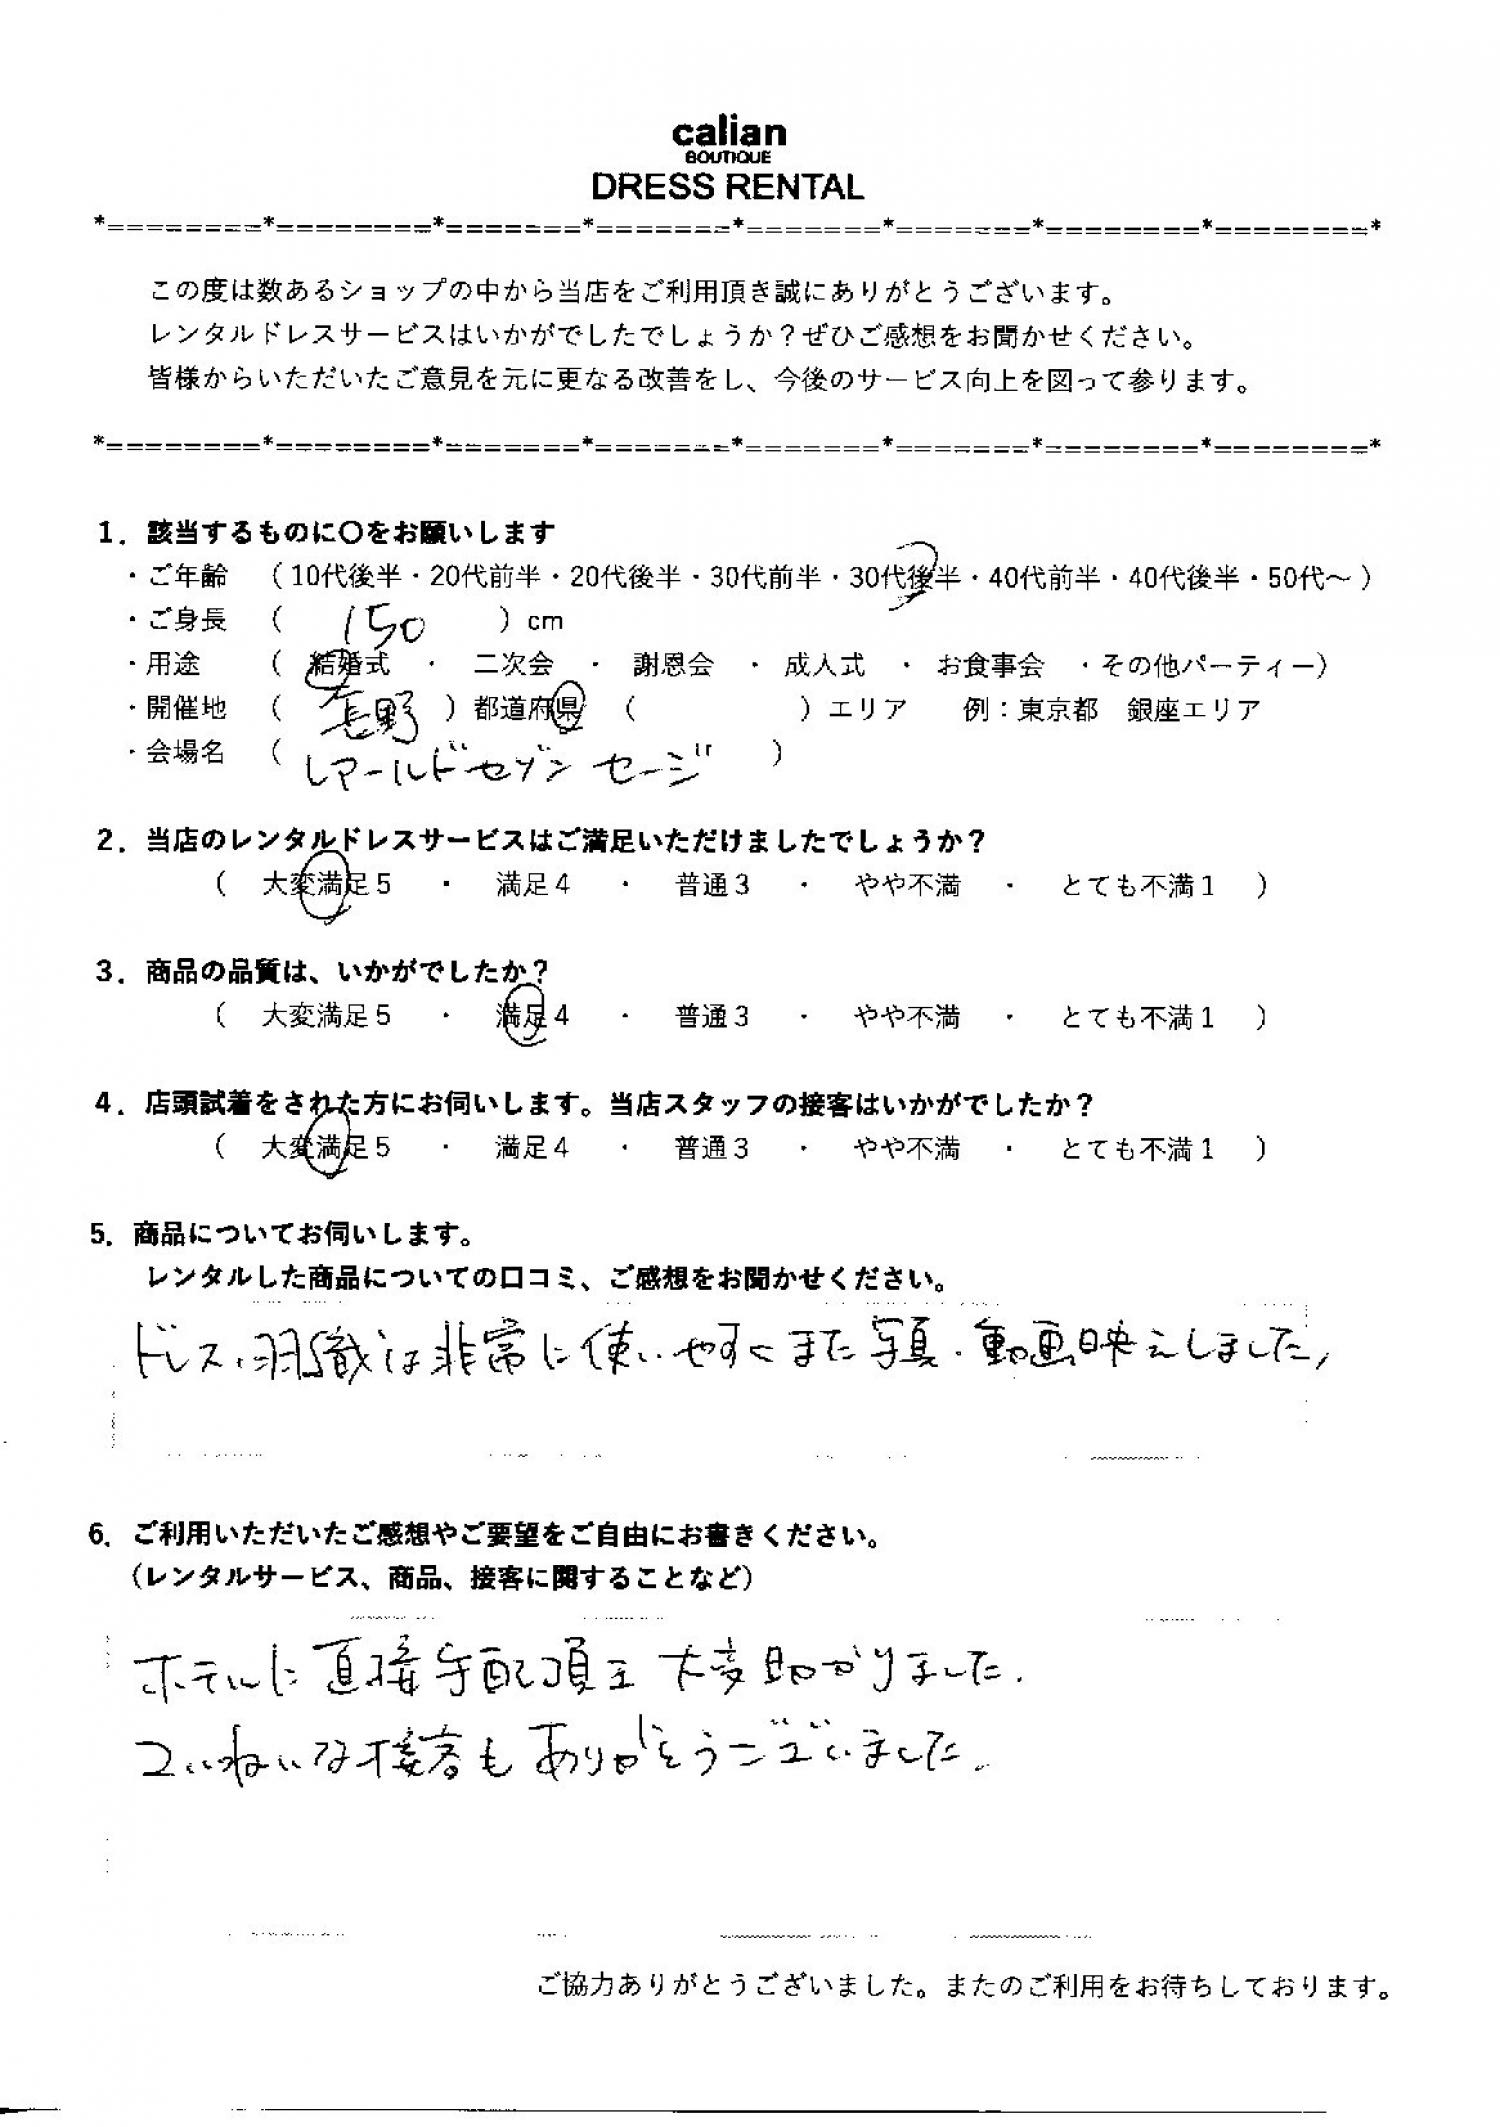 calian
BOUTIQUE
DRESS RENTAL
*========*========*=======*=======*=======*=======*========*========*
この度は数あるショップの中から当店をご利用頂き誠にありがとうございます。
レンタルドレスサービスはいかがでしたでしょうか？ぜひご感想をお聞かせください。
皆様からいただいたご意見を元に更なる改善をし、今後のサービス向上を図って参ります。
*========*========*=======*=======*=======*=======*========*========*
1．該当するものに〇をお願いします
・ご年齢 （ 10代後半・20代前半・20代後半・30代前半・30代後半・40代前半・40代後半・50代～ ）
・ご身長 （ 150 ）cm
・用途 （ 結婚式 ・ 二次会 ・ 謝恩会 ・ 成人式 ・ お食事会 ・その他パーティー）
・開催地 （ 長野 ）都道府県 （ ）エリア 例：東京都 銀座エリア
・会場名 （ レアールドセゾン セージ ）
2．当店のレンタルドレスサービスはご満足いただけましたでしょうか？
（ 大変満足５ ・ 満足４ ・ 普通３ ・ やや不満 ・ とても不満１ ）
3．商品の品質は、いかがでしたか？
（ 大変満足５ ・ 満足４ ・ 普通３ ・ やや不満 ・ とても不満１ ）
4．店頭試着をされた方にお伺いします。当店スタッフの接客はいかがでしたか？
（ 大変満足５ ・ 満足４ ・ 普通３ ・ やや不満 ・ とても不満１ ）
5．商品についてお伺いします。
レンタルした商品についての口コミ、ご感想をお聞かせください。
ドレス、羽織は非常に使いやすくまた写真・動画映えしました。
6．ご利用いただいたご感想やご要望をご自由にお書きください。
（レンタルサービス、商品、接客に関することなど）
ホテルに直接手配頂き大変助かりました。
ていねいな接客もありがとうございました。
ご協力ありがとうございました。またのご利用をお待ちしております。